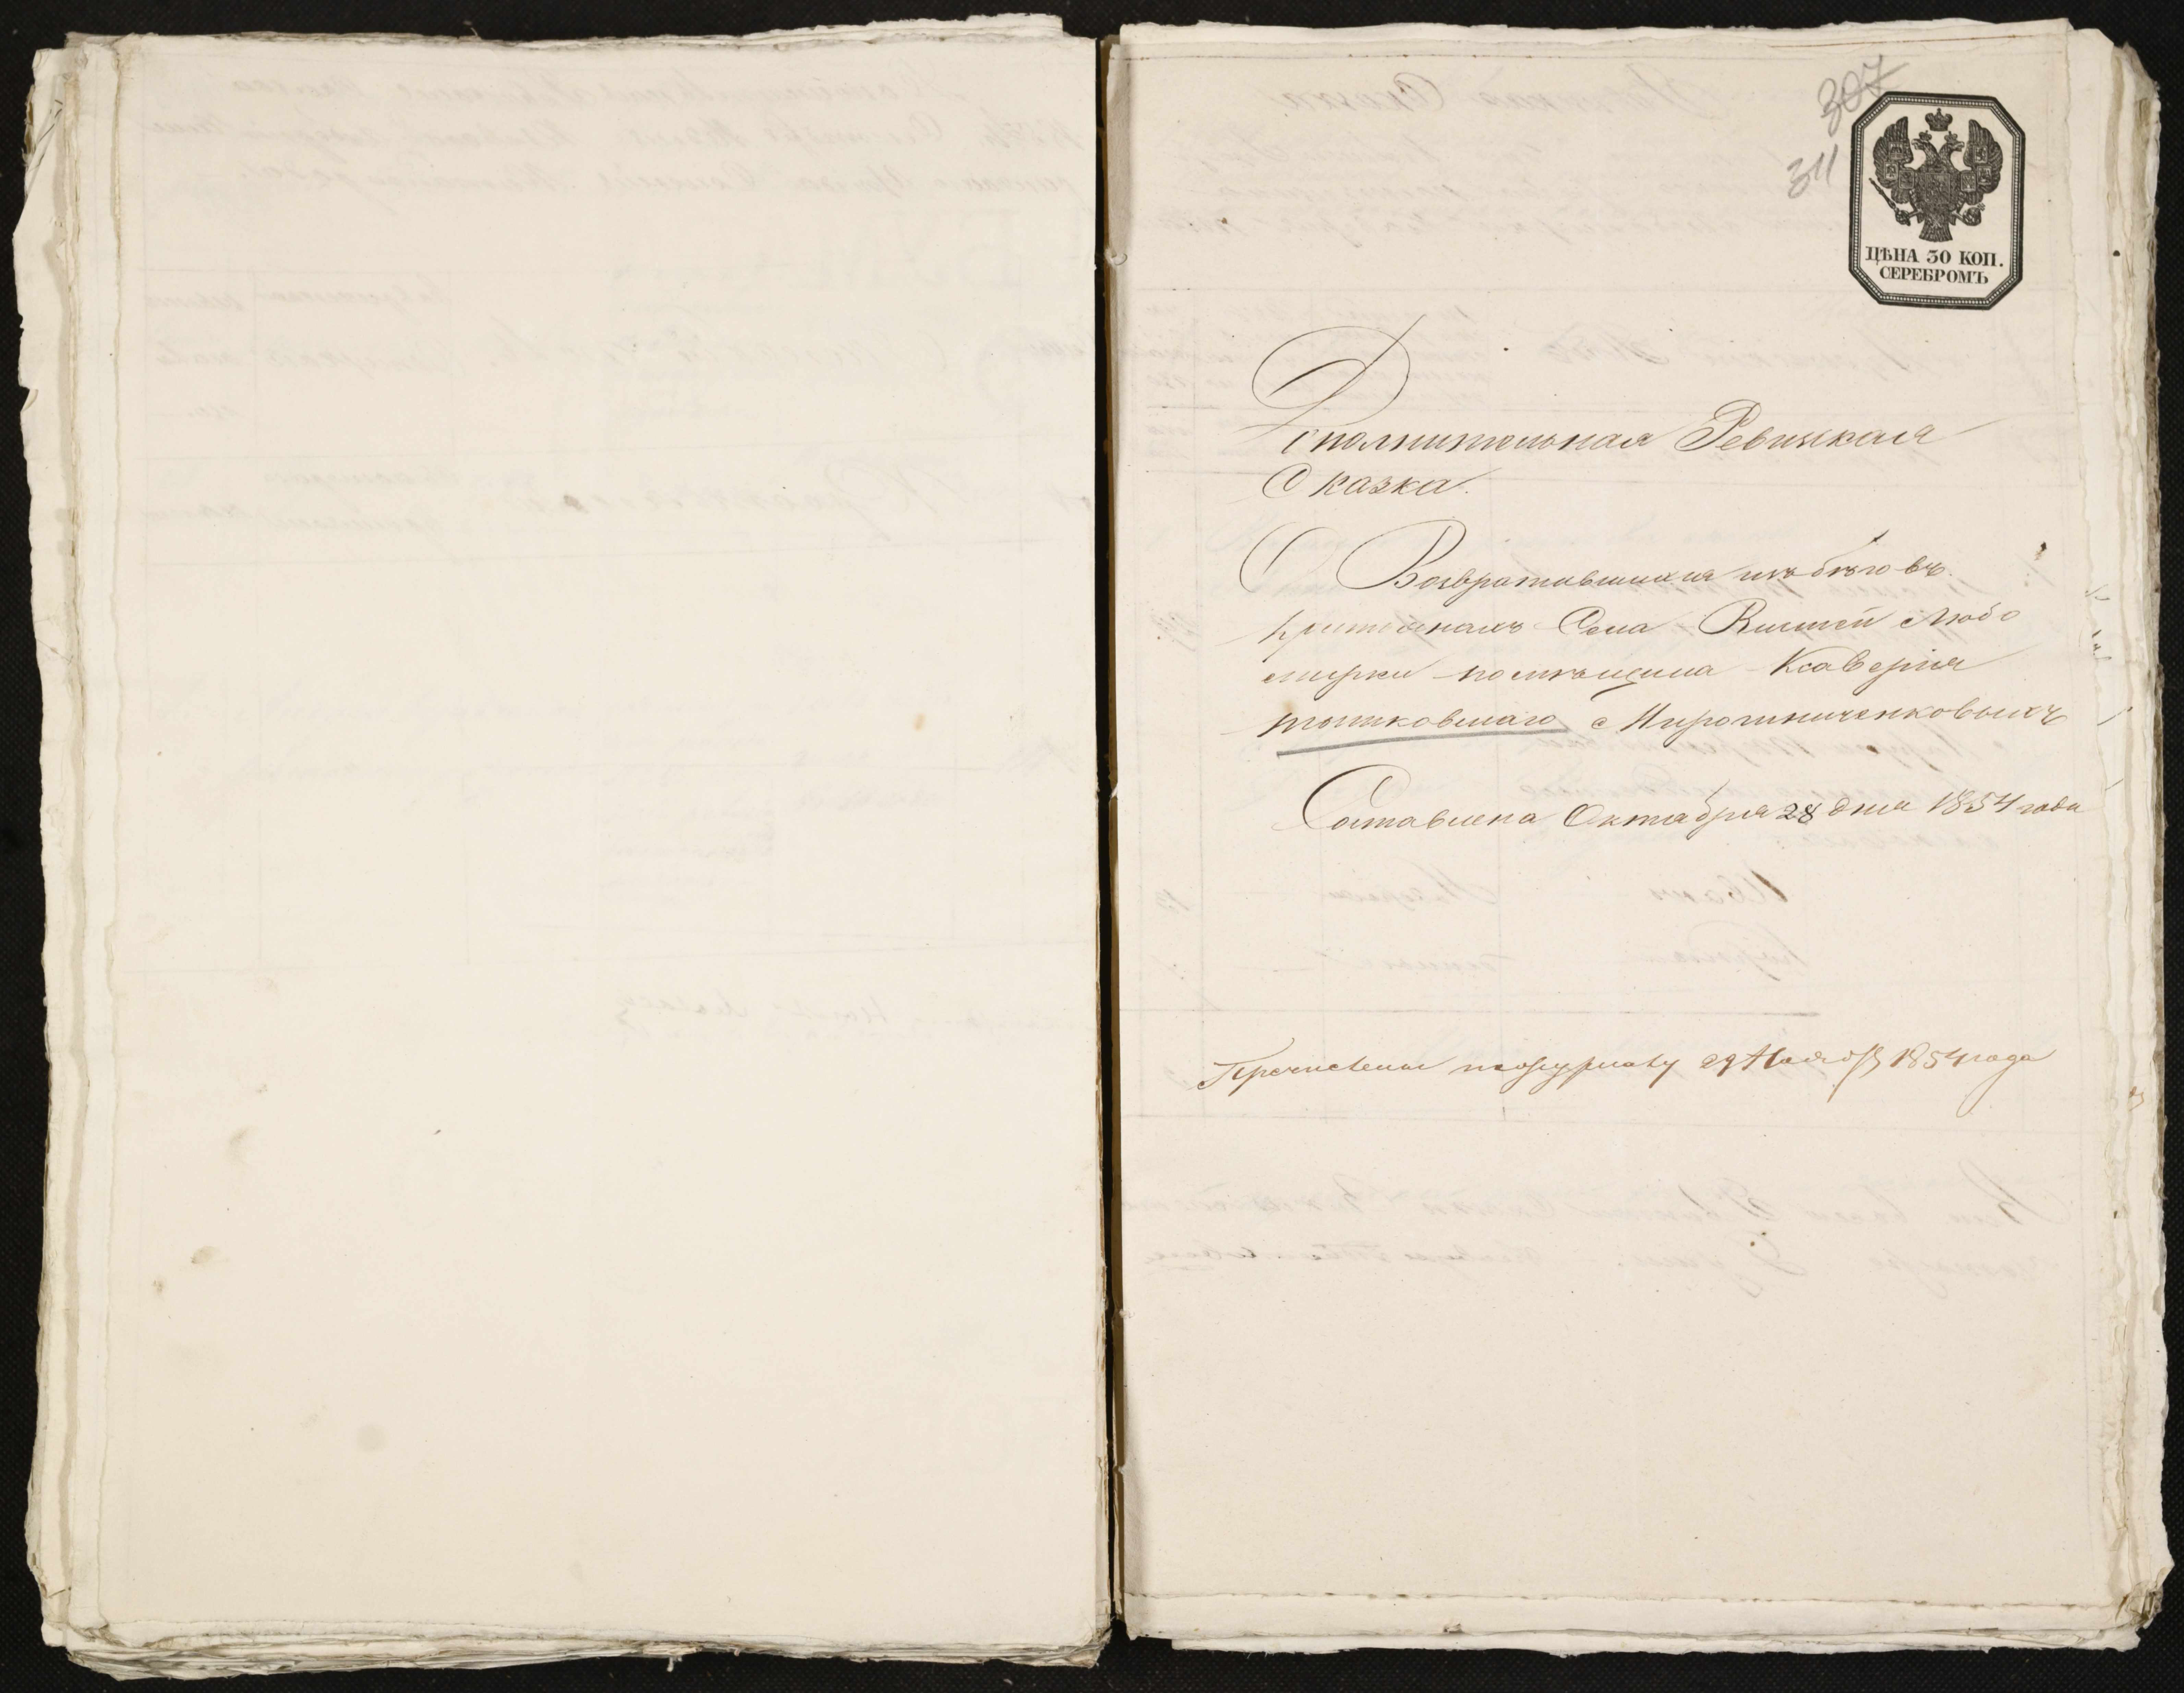 307
311
ЦѢНА 30 КОП.
СЕРЕБРОМЪ
Дополнительная Ревизская
Сказка.
О Возвратившихся изъ бѣговъ
крестьянахъ Села Вислой Любо
мирки помѣщика Ксаверія
Мирошниченковыхъ
Составлена Октября 28 дня 1854 года
29 Нояб 1854 года